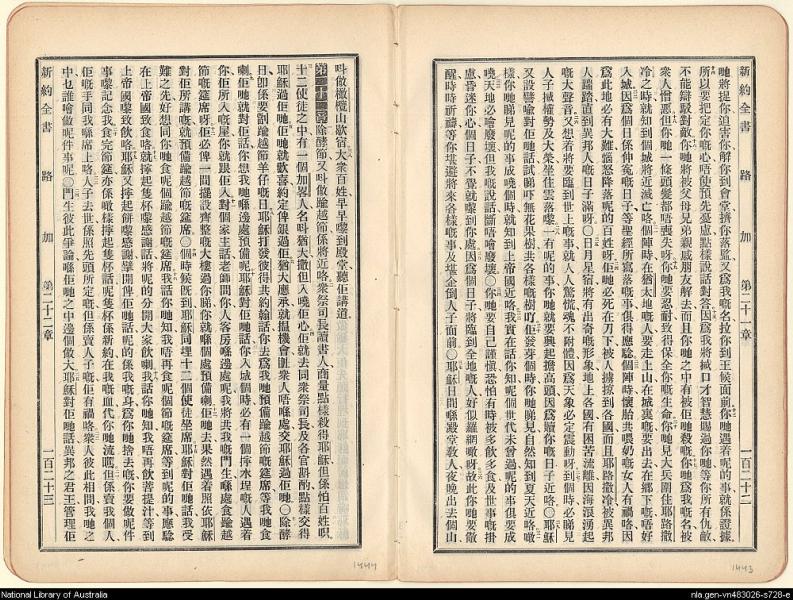 新約全書 路加 第二十一章 一百二十二
哋將捉你迫害你解你到會堂擠你落監又爲我嘅名拉你到王候面前你哋遇着呢的事就係證據
所以要把定你嘅心唔使預先憂慮點樣說話對答因爲我將賜口才智慧賜過你哋等你所有仇敵
不能辯駁對敵你哋將被父母兄弟親戚朋友解去而且你哋之中有被佢哋殺嘅你哋爲我嘅名被
衆人憎惡但你哋一條頭髮都唔喪失呀你哋要忍耐致得保全你嘅生命你哋見大兵圍住耶路撒
冷之時就知到個城將近滅亡咯個陣時在猶太地嘅人要走上山在城裏嘅要出去在鄉下嘅唔好
入城因爲個日係伸冤嘅日子等聖經所寫落嘅事俱得應騐個陣時懷胎共喂奶嘅女人有禍咯因
爲此地必有大難惱怒降落呢的百姓呀佢哋必死在刀下被人擄掠到各國而且耶路撒冷被異邦
人踹踏直到異邦人嘅日子滿呀〇日月星宿將有出奇嘅形象地上各國有困苦流離因海浪湧起
嘅大聲音又想着將要臨到世上嘅事就人人驚慌魂不附體因爲天象必定震動呀到個時必睇見
人子攞權勢及大榮坐住雲落嚟一有呢的事你哋就要興起擔高頭因爲贖你嘅日子近咯〇耶穌
又設譬喻對佢哋話試睇吓無花果樹共各樣嘅樹吖佢發芽個時你哋睇見自然知到夏天近咯噉
樣你哋睇見呢的事成嘵個時就知到上帝國近咯我實在話你知呢個世代未曾過呢的事俱要成
嘵天地必噲廢壞但我嘅說話斷唔噲廢壞〇你哋要自己謹愼恐怕有時被多飲多食及世事嘅掛
慮昏迷你心個日子不覺就嚟到你處因爲個日子將臨到全地嘅人好似羅網噉呀故此你哋要儆
醒時時祈禱等你堪避將來各樣嘅事及堪企倒人子面前〇耶穌日間喺殿堂敎人夜晚出去個山
呌做橄欖山歇宿大衆百姓早早嚟到殿堂聽佢講道
第二十二章 除酵節又呌做踰越節係將近咯衆祭司長讀書人商量點樣殺得耶穌但係怕百姓呮
十二使徒之中有一個加畧人名呌猶大撒但入嘵佢心佢就去同衆祭司長及各官斟酌點樣交得
耶穌過佢哋佢哋就歡喜約定俾銀過佢猶大應承就搵機會離衆人唔喺處交耶穌過佢哋〇除酵
日卽係要劏踰越節羊仔嘅日耶穌打發彼得共約翰話你去爲我哋預備踰越節嘅筵席等我哋食
喇佢哋就對佢話你想我哋喺邊處預備呢耶穌對佢哋話你入城個時必有一個捧水埕嘅人遇着
你佢所入嘅屋你就跟佢入對個家主話老師問你人客房喺邊處呢我將共我嘅門生喺處食踰越
節嘅筵席呀佢必俾一間擺設齊整嘅大樓過你睇你就喺個處預備喇佢哋去果然遇着照依耶穌
對佢所講嘅就預備踰越節嘅筵席〇個時候旣到耶穌同埋十二個使徒坐席耶穌對佢哋話我受
難之先好想同你哋食呢個踰越節嘅筵席我話你哋知我唔再食呢個節嘅筵席等到呢的事應騐
在上帝國致食咯就捧起隻杯嚟感謝話將呢的分開大家飲喇我話你哋知我唔再飲菩提汁等到
上帝國嚟致飲咯耶穌又捧起餅嚟感謝擘開俾佢哋話呢的係我嘅身爲你哋捨去嘅你要做呢件
事嚟記念我食完筵席亦係噉樣捧起隻杯話呢隻杯係新約在我嘅血爲你哋流嘅但係賣我個人
佢嘅手同我喺席上咯人子去世係照先頭所定嘅但係賣人子嘅佢有禍咯衆人彼此相問我哋之
中乜誰噲做呢件事呢〇門生彼此爭論喺佢哋之中邊個做大耶穌對佢哋話異邦之君王管理佢
新約全書 路加 第二十二章 一百二十三
1443
1444
National Library of Australia
nla.gen-vn483026-s728-e